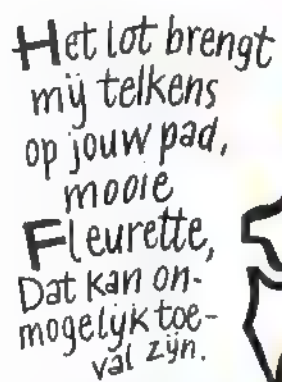 Het lot brengt
mij telkens
op jouw pad,
mooie
Fleurette,
Dat kan on-
mogelijk toe-
val zijn.